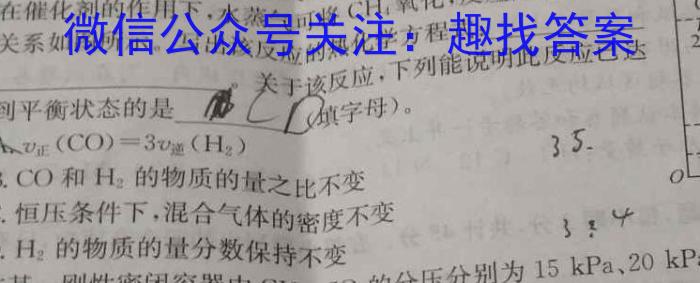 在催化剂的作用下,水蒸气可将CH₄氧化,
微信公众号关注：趣找答案
关系如
该反应的热化学方程
。关于该反应,下列能说明此反应已达
到平衡状态的是 CD (填字母)。
A. v正(CO)=3v逆(H₂)
B. CO和H₂的物质的量之比不变
C. 恒压条件下,混合气体的密度不变
. H₂的物质的量分数保持不变
3.5.
3:4
刚性密闭容器
的分压分别为15 kPa、20 kP
2
O